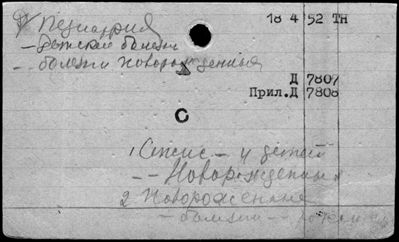 Педиатрия 18 4 52 ТН
— Детские болезни
— болезни новорожденных
Д 7807
Прил.Д 7808
С
1 Сепсис — у детей
— — Новорожденных
2 Новорожденные
— болезни — —